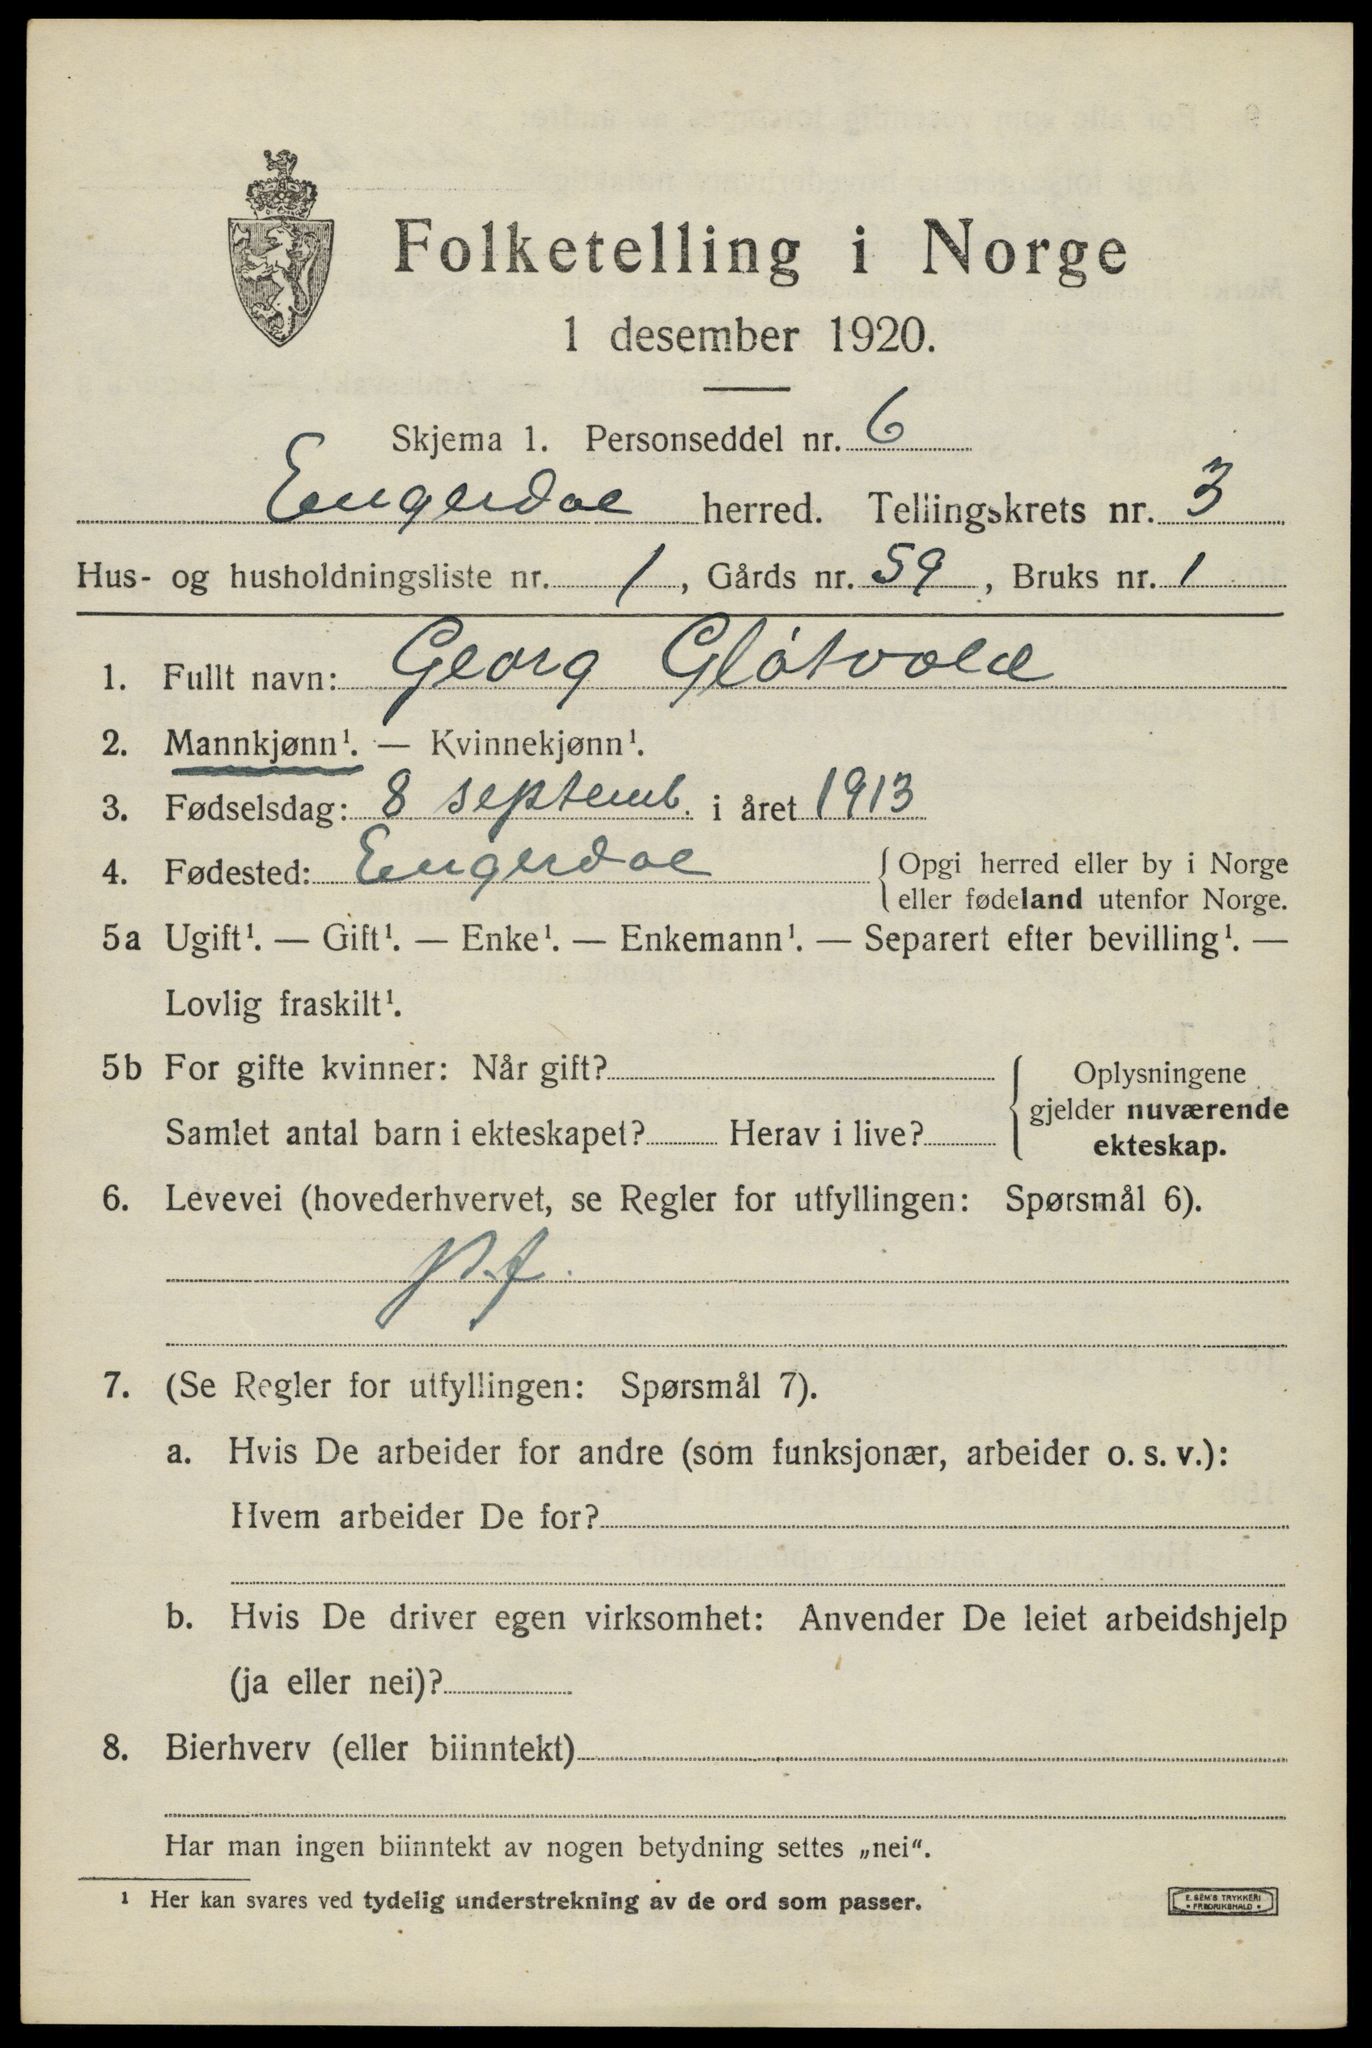 Folketelling i Norge
1 desember 1920.
Skjema 1. Personseddel nr. 6
Engerdal herred. Tellingskrets nr. 3
Hus- og husholdningsliste nr. 1, Gårds nr. 59, Bruks nr. 1
1. Fullt navn: Georg Gløtvold
2. Mannkjønn¹. — Kvinnekjønn¹.
3. Fødselsdag: 8 septemb. i året 1913
4. Fødested: Engerdal {Opgi herred eller by i Norge
eller fødeland utenfor Norge.
5a Ugift¹. — Gift¹. — Enke¹. — Enkemann¹. — Separert efter bevilling¹. —
Lovlig fraskilt¹.
5b For gifte kvinner: Når gift?
Samlet antal barn i ekteskapet? Herav i live?
{Oplysningene
gjelder nuværende
ekteskap.
6. Levevei (hovederhvervet, se Regler for utfyllingen: Spørsmål 6).
7. (Se Regler for utfyllingen: Spørsmål 7).
a. Hvis De arbeider for andre (som funksjonær, arbeider o. s. v.):
Hvem arbeider De for?
b. Hvis De driver egen virksomhet: Anvender De leiet arbeidshjelp
(ja eller nei)?
8. Bierhverv (eller biinntekt)
Har man ingen biinntekt av nogen betydning settes „nei“.
¹ Her kan svares ved tydelig understrekning av de ord som passer.
E. SEM'S TRYKKERI
• FREDRIKSHALD •